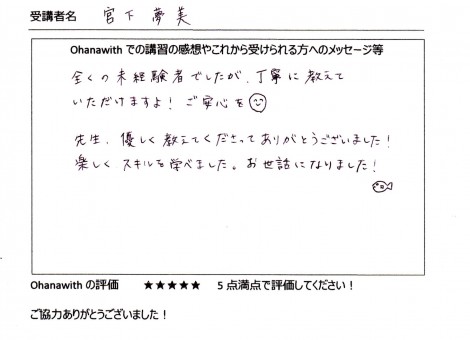 受講者名 宮下 夢美
Ohanawith での講習の感想やこれから受けられる方へのメッセージ等
全くの未経験者でしたが、丁寧に教えて
いただけますよ！ご安心を
先生、優しく教えてくださってありがとうございました！
楽しくスキルを学べました。お世話になりました！
Ohanawith の評価 ★★★★★ 5 点満点で評価してください！
ご協力ありがとうございました！